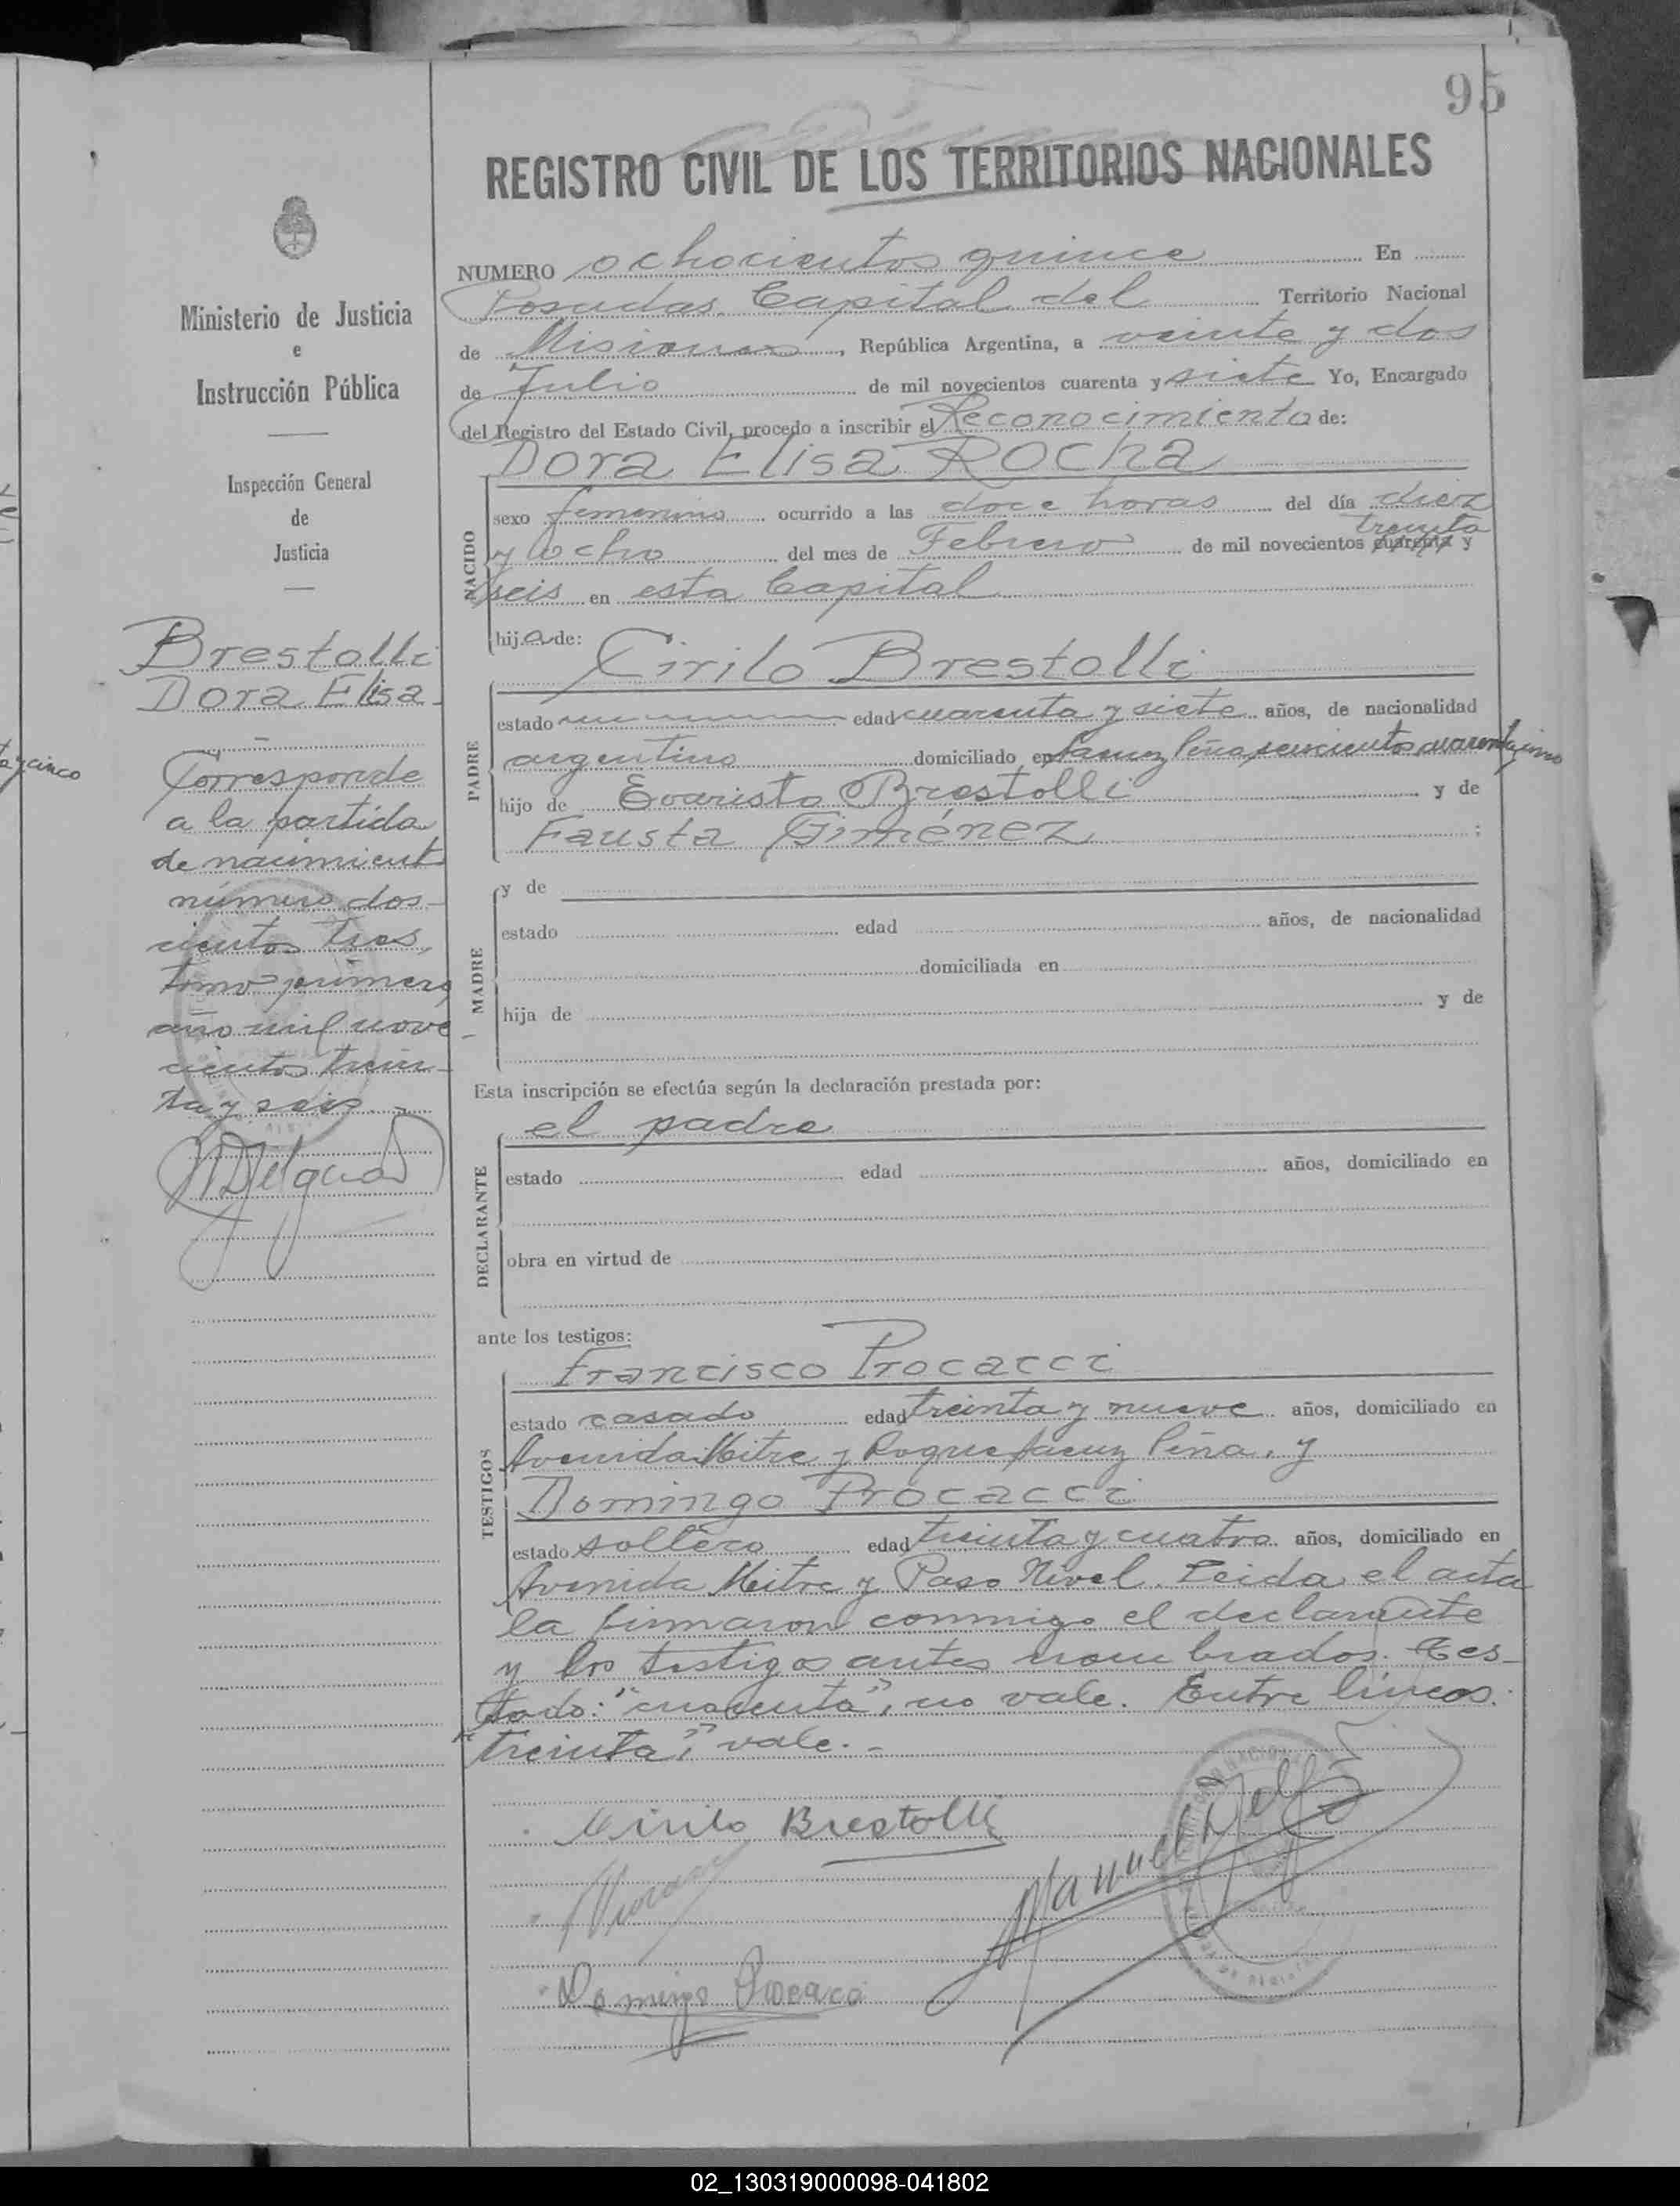 95
REGISTRO CIVIL DE LOS TERRITORIOS NACIONALES
Ministerio de Justicia
e
Instrucción Pública
Inspección General
de
Justicia
Brestolli
Dora Elisa
Corresponde
a la partida
de nacimient
número dos-
cientos tres,
tomo primero
año mil nove
cientos trein-
ta y seis.-
NUMERO ochocientos quince En
Posadas Capital del Territorio Nacional
de Misiones, República Argentina, a veinte y dos
de Julio de mil novecientos cuarenta y siete Yo, Encargado
del Registro del Estado Civil, procedo a inscribir el Reconocimiento de:
Dora Elisa Rocha
NACIDO
sexo femenino ocurrido a las doce horas del día diez
y ocho del mes de Febrero de mil novecientos cuarenta treinta y
seis en esta Capital
hija de:
Cirilo Brestolli
PADRE
estado edad cuarenta y siete años, de nacionalidad
argentino domiciliado en Saenz Peña seiscientos cuarenta y cinco
hijo de Evaristo Brestolli y de
Fausta Giménez ;
MADRE
y de
estado edad años, de nacionalidad
domiciliada en
hija de y de
Esta inscripción se efectúa según la declaración prestada por:
el padre
DECLARANTE
estado edad años, domiciliado en
obra en virtud de
ante los testigos:
Francisco Procacci
TESTIGOS
estado casado edad treinta y nueve años, domiciliado en
Avenida Mitre y Roque Saenz Peña, y
Domingo Procacci
estado soltero edad treinta y cuatro años, domiciliado en
Avenida Mitre y Paso Nivel. Leida el acta
la firmaron conmigo el declarante
y los testigos antes nombrados. Tes-
tado: "cuarenta", no vale. Entre lineas:
"treinta", vale.-
Cirilo Brestolli
Manuel
Domingo Procacci
02_130319000098-041802